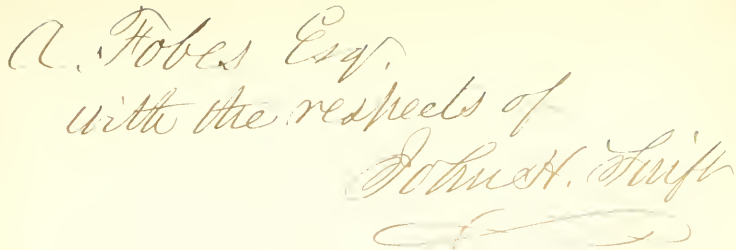 A. Fobes Esq.
with the respects of
John H. Swift